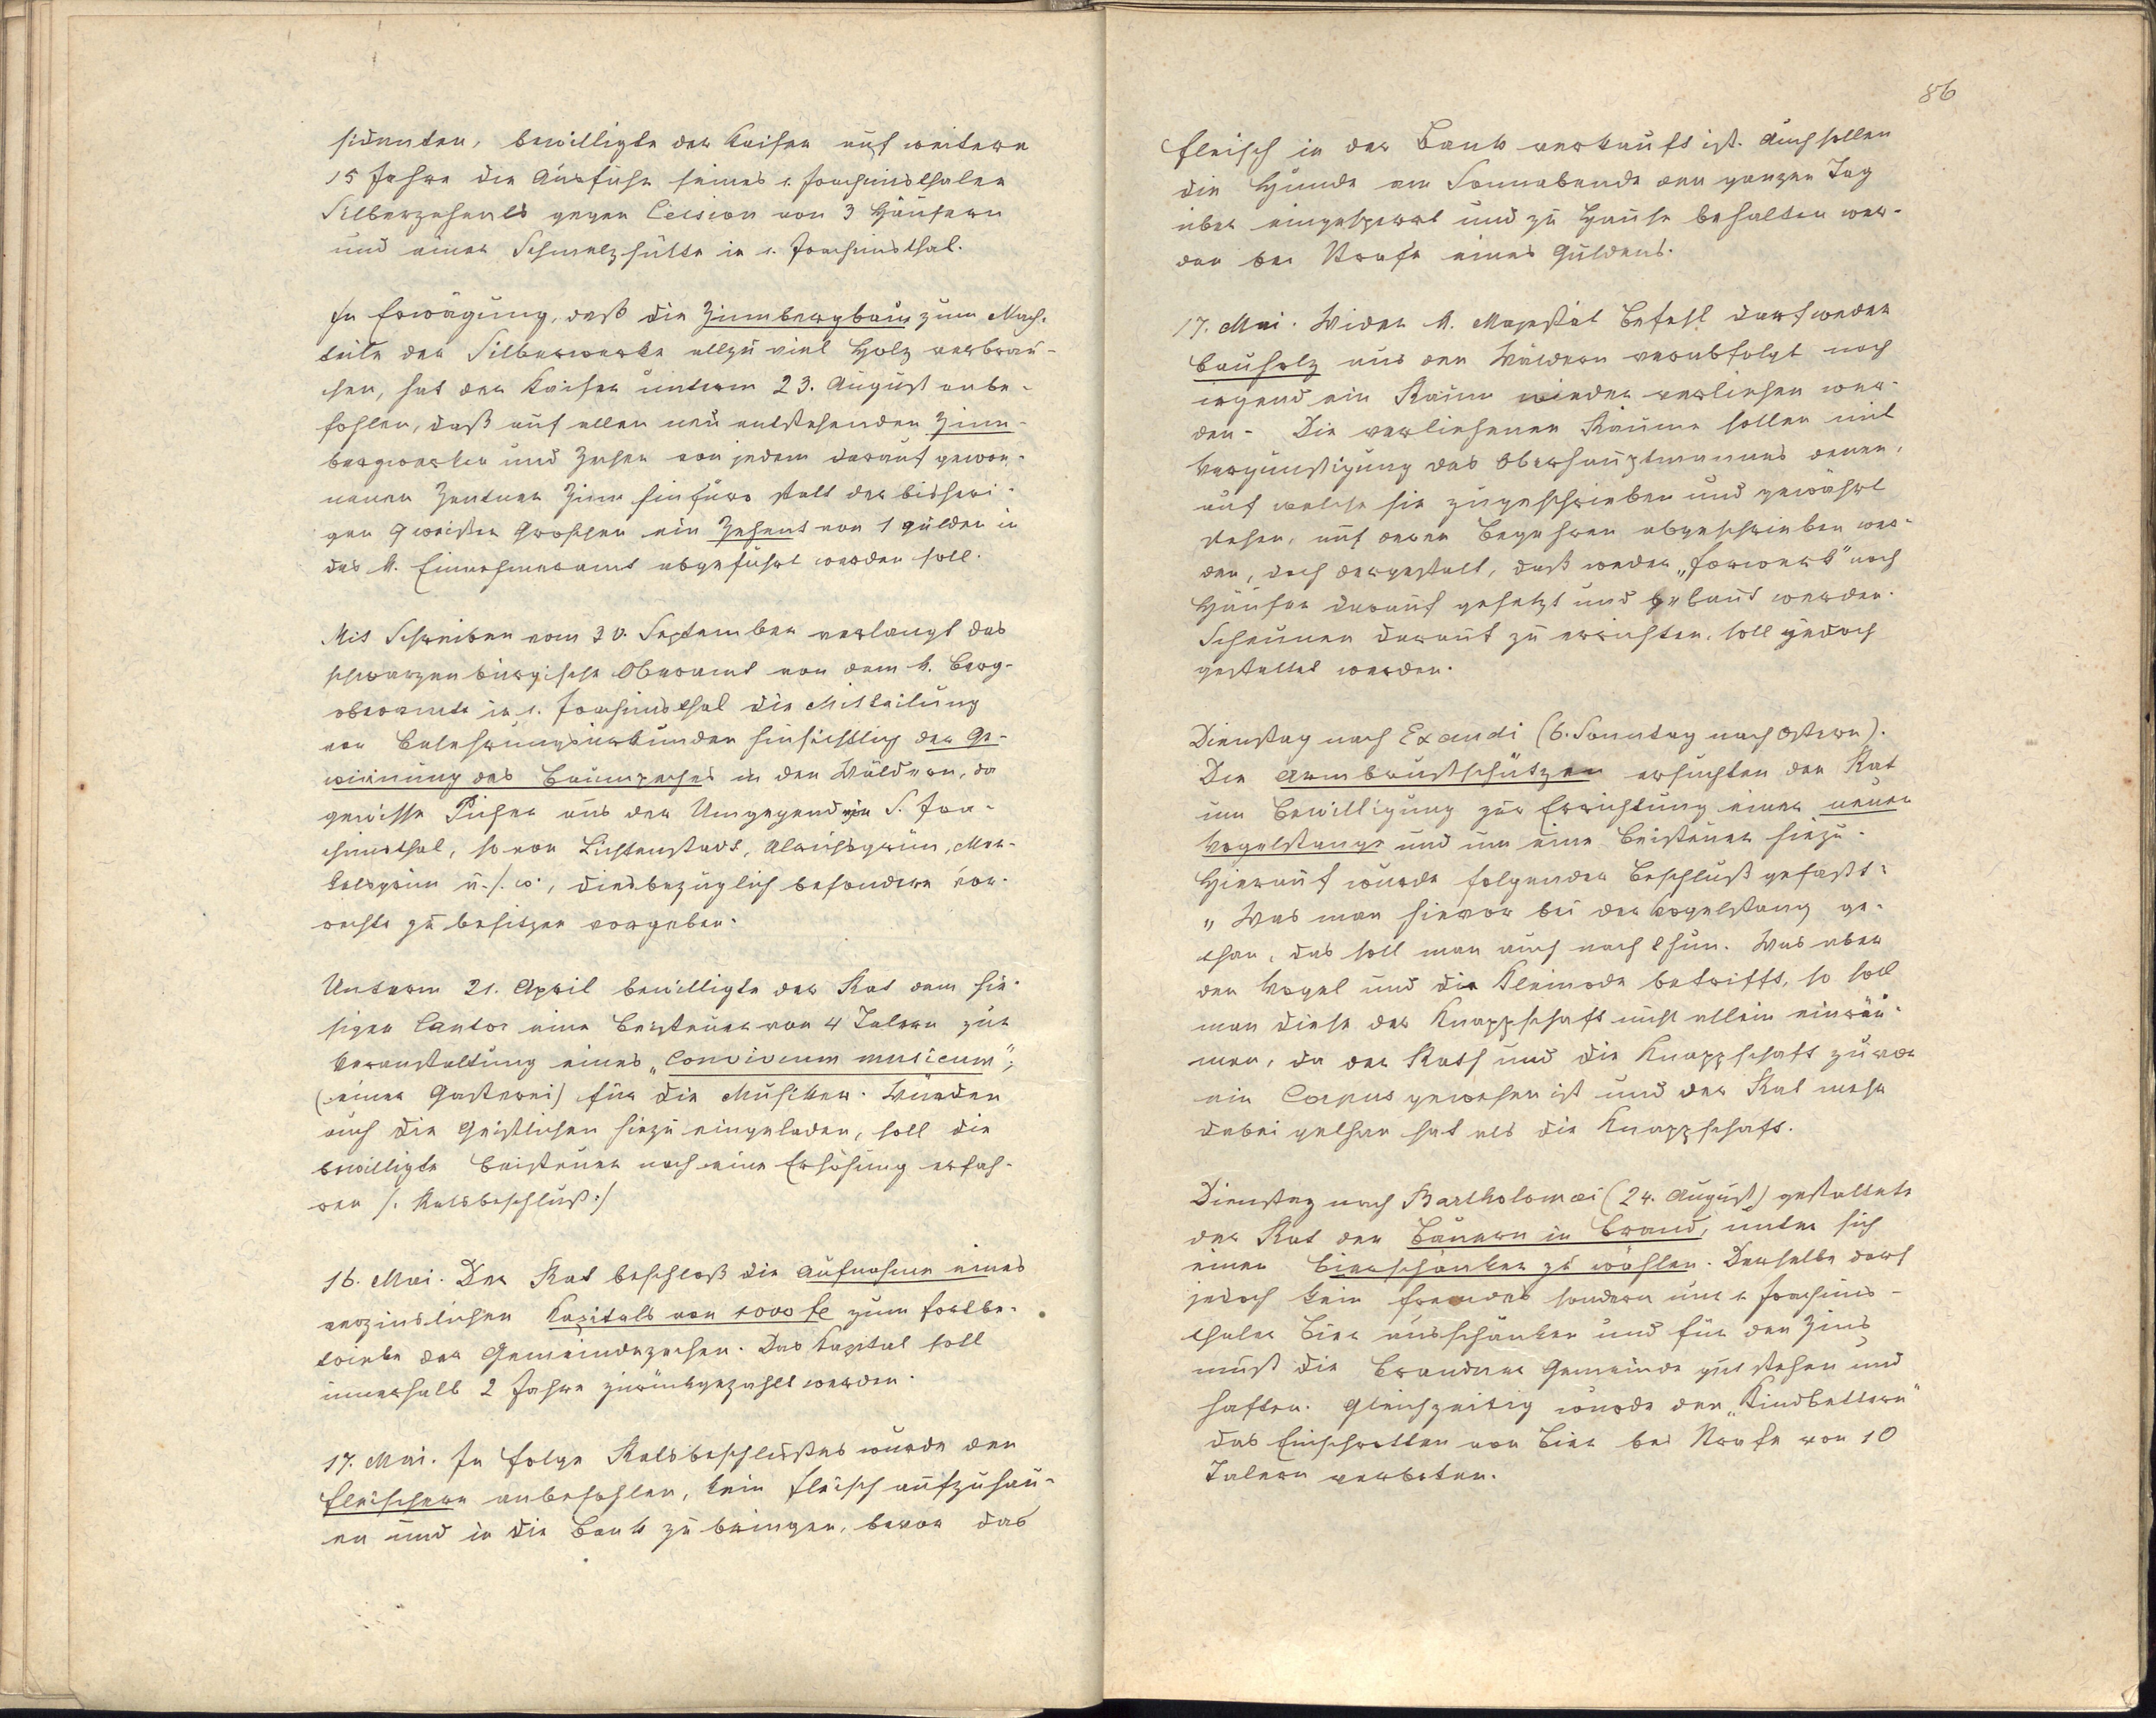 sidenten, bewilligte der Kaiser auf weitere
15 Jahre die Ausfuhr seines s. Joachimsthaler
Silberzehents gegen Cession von 3 Häusern
und einer Schmelzhütte in s. Joachimsthal.
In Erwägung, daß die Zinnbergbaue zum Nach-
teile der Silberwerke allzu viel Holz verbrau-
chen, hat der Kaiser unterm 23. August anbe-
fohlen, daß auf allen neu entstehenden Zinn-
bergwerken und Zechen von jedem darauf gewon-
nenen Zentner Zinn hinfüro statt der bisheri-
gen 9 weißen Groschen ein Zehent von 1 Gulden in
das k. Einnehmeramt abgeführt werden soll.
Mit Schreiben vom 30. September verlangt das
schwarzenburgische Oberamt von dem k. Berg-
oberamte in s. Joachimsthal die Mitteilung
von Belehnungsurkunden hinsichtlich der Ge-
winnung des Baumpeches in den Wäldern, da
gewisse Picher aus der Umgegend von S. Joa-
chimsthal, so von Lichtenstadt, Ulrichsgrün, Mer-
kelsgrün u. s. w., diesbezüglich besondere Vor-
rechte zu besitzen vorgeben.
Unterm 21. April bewilligte der Rat dem hie-
sigen Cantor eine Beisteuer von 4 Talern zur
Veranstaltung eines „Convivium musicum",
(einer Gasterei) für die Musiker. Würden
auch die Geistlichen hiezu eingeladen, soll die
bewilligte Beisteuer noch eine Erhöhung erfah-
ren /: Ratsbeschluß :/
16. Mai. Der Rat beschloß die Aufnahme eines
verzinslichen Kapitals von 1000 fl zum Fortbe-
triebe der Gemeindezechen. Das Kapital soll
innerhalb 2 Jahre zurückgezahlt werden.
17. Mai. In Folge Ratsbeschlußes wurde den
Fleischern anbefohlen, kein Fleisch aufzuhau-
en und in die Bank zu bringen, bevor das
86
Fleisch in der Bank verkauft ist. Auch sollen
die Hunde am Sonnabende den ganzen Tag
über eingesperrt und zu Hause behalten wer-
den bei Strafe eines Guldens.
17. Mai. Wider k. Majestät Befehl darf weder
Bauholz aus den Wäldern verabfolgt noch
irgend ein Raum wieder verliehen wer-
den. Die verliehenen Räume sollen mit
Vergünstigung des Oberhauptmannes denen,
auf welche sie zugeschrieben und gewährt
stehen, auf deren Begehren abgeschrieben wer-
den, doch dergestalt, daß weder „Forwerk" noch
Häuser darauf gesetzt und gebaut werden.
Scheunen darauf zu errichten, soll jedoch
gestattet werden.
Dienstag nach Exaudi (6. Sonntag nach Ostern).
Die Armbrustschützen ersuchten den Rat
um Bewilligung zur Errichtung einer neuen
Vogelstange und um eine Beisteuer hiezu.
Hierauf wurde folgender Beschluß gefaßt:
„Was man hievor bei der Vogelstang ge-
than, das soll man auch noch thun. Was aber
den Vogel und die Kleinode betrifft, so soll
man diese der Knappschaft nicht allein einräu-
men, da der Rath und die Knappschaft zuvor
ein Corpus gewesen ist und der Rat mehr
dabei gethan hat als die Knappschaft.
Dienstag nach Bartholomäi (24. August) gestattete
der Rat den Bauern in Brand, unter sich
einen Bierschänker zu wählen. Derselbe darf
jedoch kein fremdes sondern nur s. Joachims-
thaler Bier ausschänken und für den Zins
muß die Brandner Gemeinde gut stehen und
haften. Gleichzeitig wurde den „Kindbettern"
das Einschrotten von Bier bei Strafe von 10
Talern verboten.